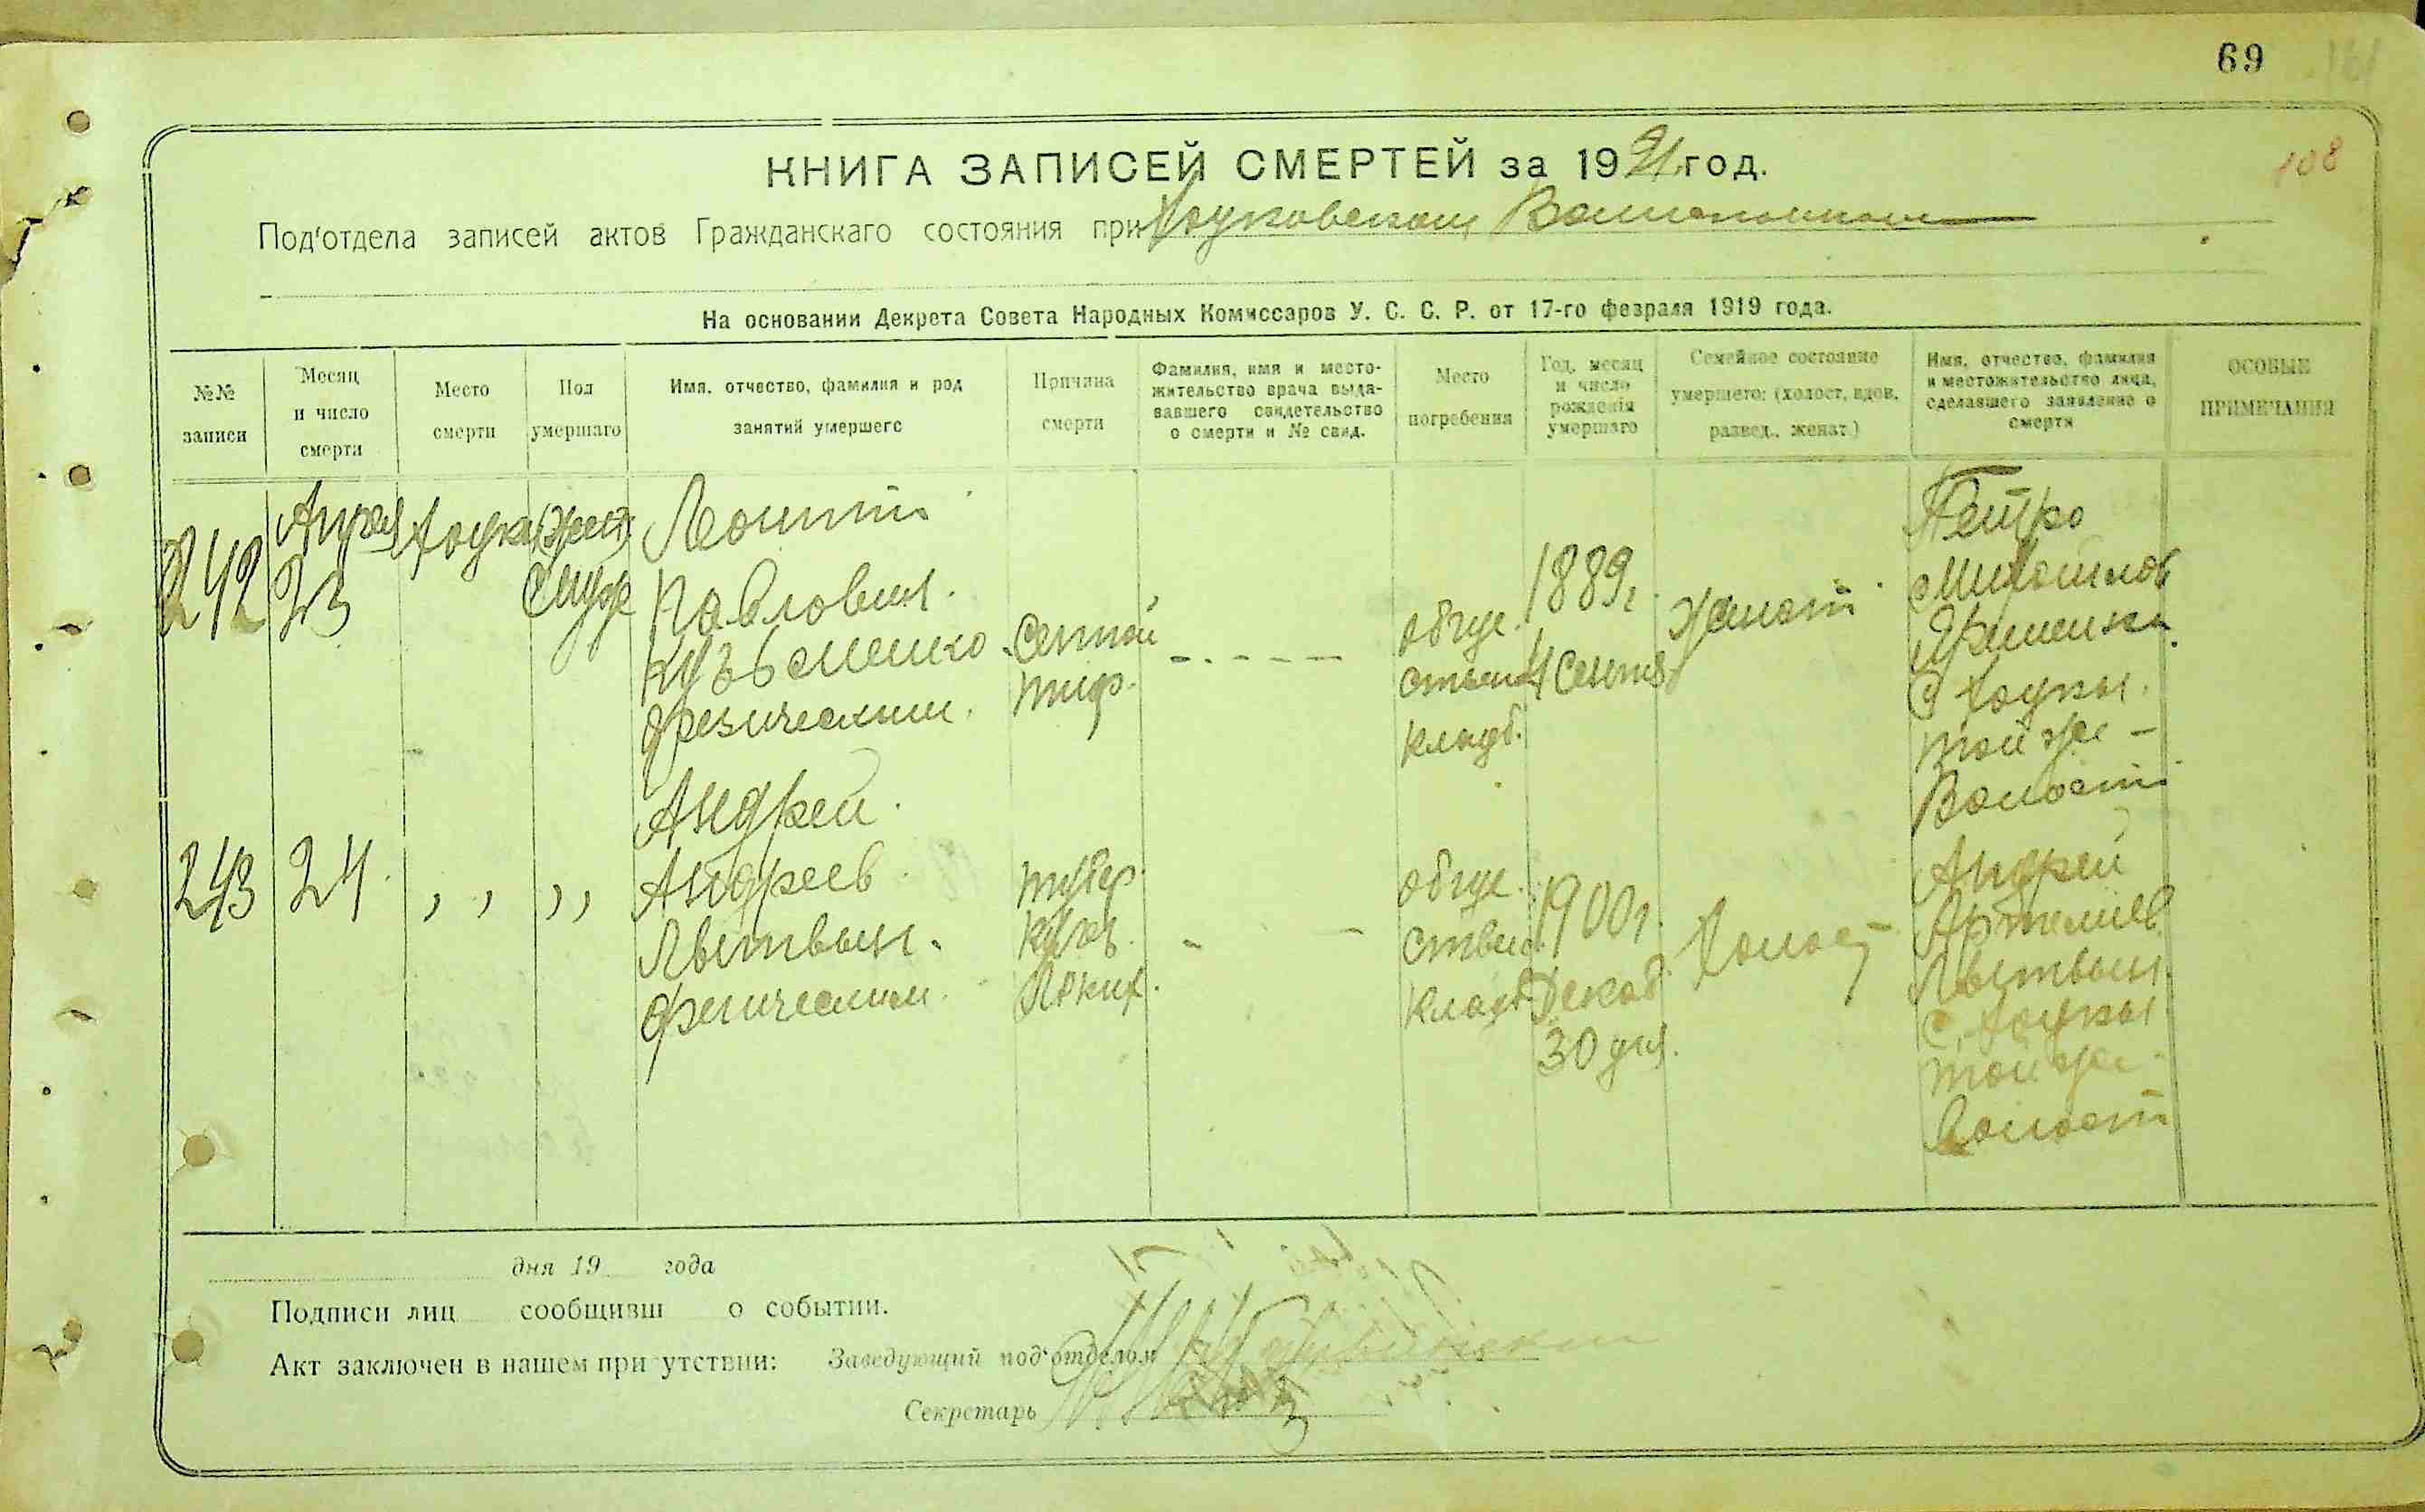 69
108
КНИГА ЗАПИСЕЙ СМЕРТЕЙ за 1921 год.
Под'отдела записей актов Гражданскаго состояния при
На основании Декрета Совета Народных Комиссаров У. С. С. Р. от 17-го февраля 1919 года.
№№ записи
Месяц и число смерти
Место смерти
Пол умершаго
Имя, отчество, фамилия и род занятий умершего
Причина смерти
Фамилия, имя и место-
жительство врача выда-
вавшего свидетельство
о смерти и № свид.
Место погребения
Год, месяц
и число
рождения
умершаго
Семейное состояние
умершего: (холост, вдов,
развед., женат.)
Имя, отчество, фамилия
и местожительство лица,
сделавшего заявление о
смерти
ОСОБЫЕ
ПРИМЕЧАНИЯ
242
23
Павлович
Кузьменко
физическим
тиф.
обще
ствен
кладб.
1889г.
4 Сентя
женат
Петро
той же
Волости
243
24
" "
" "
Андрей
Андреев
Лытвын
физическим
тубер
кулез
легких
обще
ствен
кладб
1900г.
Декаб
30 дня
Холост
Андрей
Артемиев
Лытвын
той же
Волости
дня 19 года
Подписи лиц сообщивш о событии.
Акт заключен в нашем при утствии: Заведующий под'отделом
Секретарь